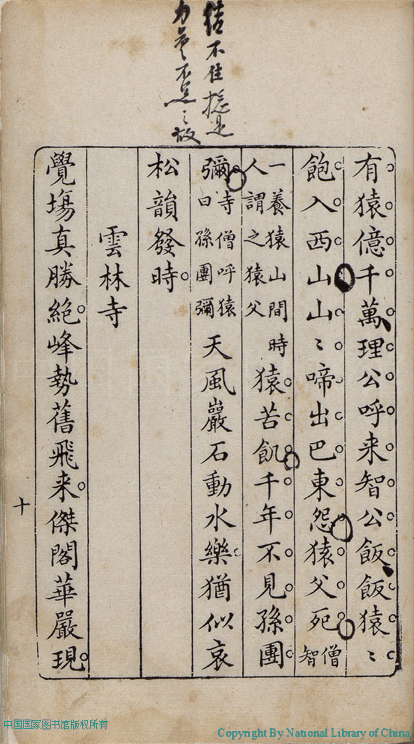 結不住總是
力量不足之故
有猿億千萬理公呼来智公飯飯猿〻
飽入西山山〻啼出巴東怨猿父死僧智
一養猿山間時人謂之猿父猿苦飢千年不見孫團
彌寺僧呼猿曰孫團彌天風巖石動水樂猶似哀
松韻發時
雲林寺
覺塲真勝絶峰勢舊飛来傑閣華嚴現
十
中国国家图书馆版权所有
Copyright By National Library of China